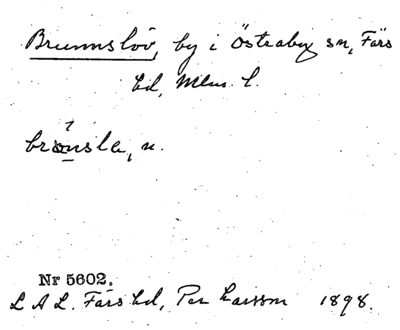 Brunnslöv, by i Östraby sn, Färs
hd, Mlm. l.
brǿnsla, n.
Nr 5602.
L A L. Färs hd, Per Larsson 1898.